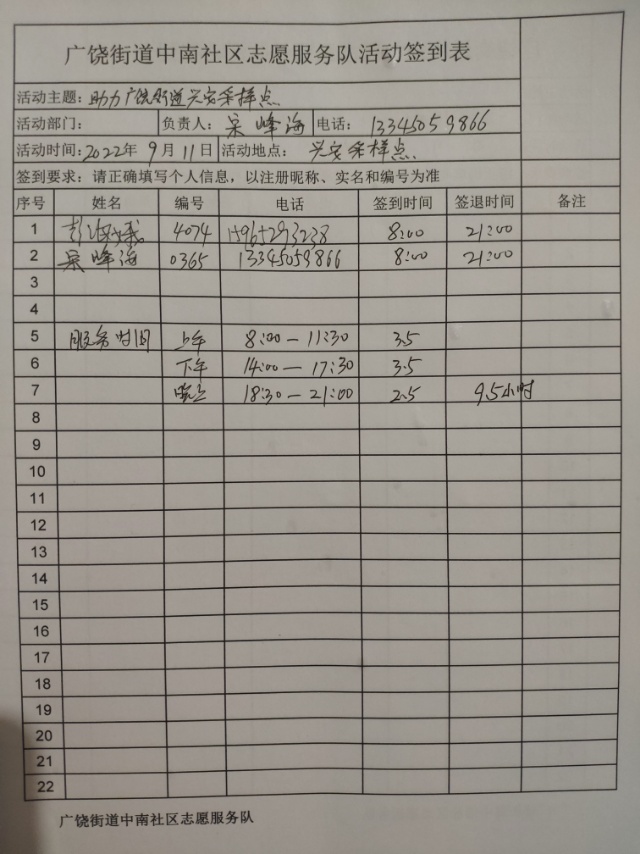 广饶街道中南社区志愿服务队活动签到表
活动主题：助力广饶街道兴安采样点
活动部门： 负责人：吴峰海 电话：13345059866
活动时间：2022年9月11日 活动地点：兴安采样点
签到要求：请正确填写个人信息，以注册昵称、实名和编号为准
序号 姓名 编号 电话 签到时间 签退时间 备注
1 彭 4074 15965293238 8:00 21:00
2 吴峰海 0365 13345059866 8:00 21:00
3
4
5 服务时间 上午 8:00—11:30 3.5
6 下午 14:00—17:30 3.5
7 晚上 18:30—21:00 2.5 9.5小时
8
9
10
11
12
13
14
15
16
17
18
19
20
21
22
广饶街道中南社区志愿服务队